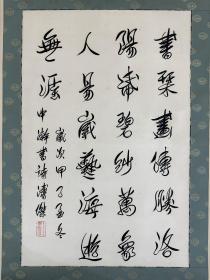 書琹畫傳勝洛
陽帋碧紗萬象
人易歲藝海遊
無涯
歲次甲子孟冬
書詩溥傑